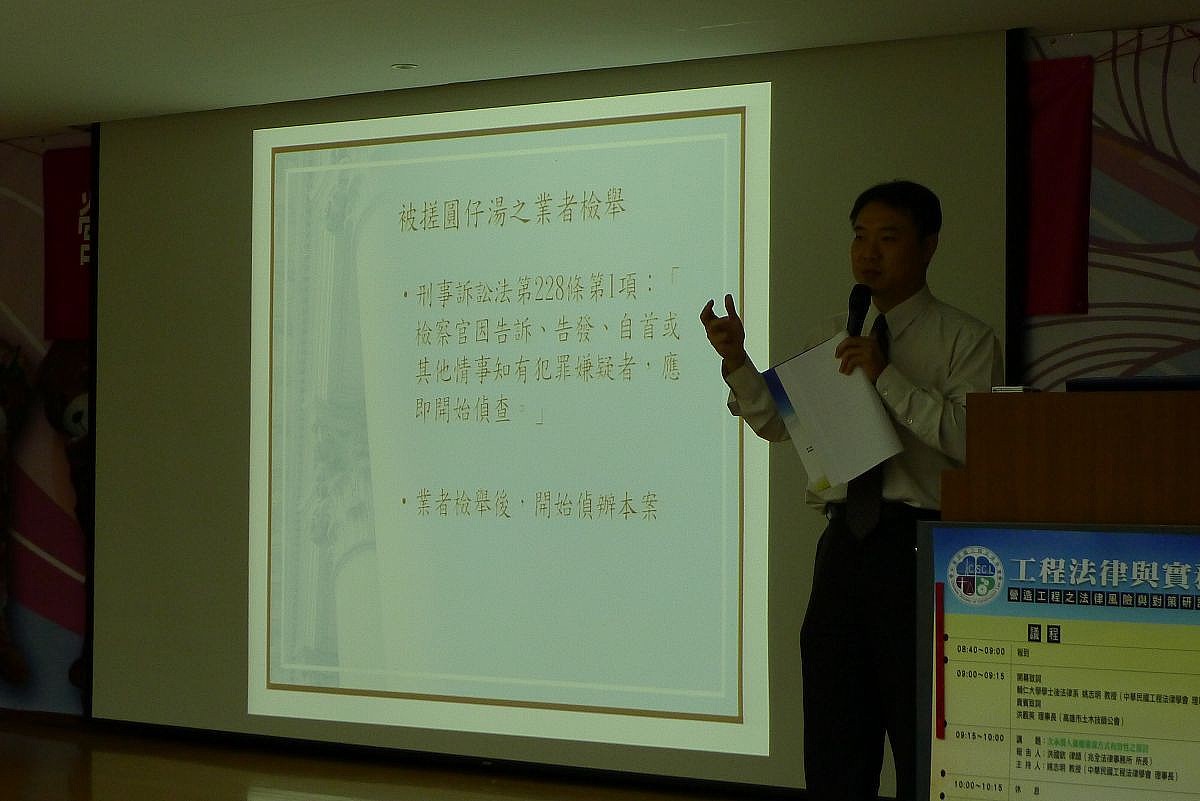 被搓圓仔湯之業者檢舉
•刑事訴訟法第228條第1項：「
檢察官因告訴、告發、自首或
其他情事知有犯罪嫌疑者，應
即開始偵查。」
•業者檢舉後，開始偵辦本案
CSCL
工程法律與實
營造工程之法律風險與對策研
議程
08:40~09:00 報到
09:00~09:15 開幕致詞
輔仁大學學士後法律系 姚志明 教授（中華民國工程法律學會 理
貴賓致詞
洪觀英 理事長（高雄市土木技師公會）
09:15~10:00 講 題：
報告人：洪國欽 律師（兆全法律事務所 所長）
主持人：姚志明 教授（中華民國工程法律學會 理事長）
10:00~10:15 休 息